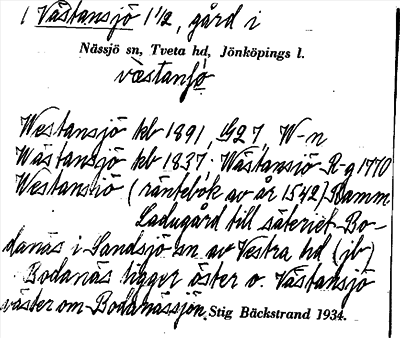 1 Västansjö 1 1/2, gård i
Nässjö sn, Tveta hd, Jönköpings l.
væstanʃø
Westansjö kb 1891, 1927, W-n
Wästansjö kb 1837. Wästansjö R-g 1770
Westansiö (räntebok av år 1542) Ramm
Ladugård till säteriet Bo-
danäs i Sandsjö sn av Vestra hd (jb)
Bodanäs ligger öster o. Västansjö
väster om Bodanässjön. Stig Bäckstrand 1934.